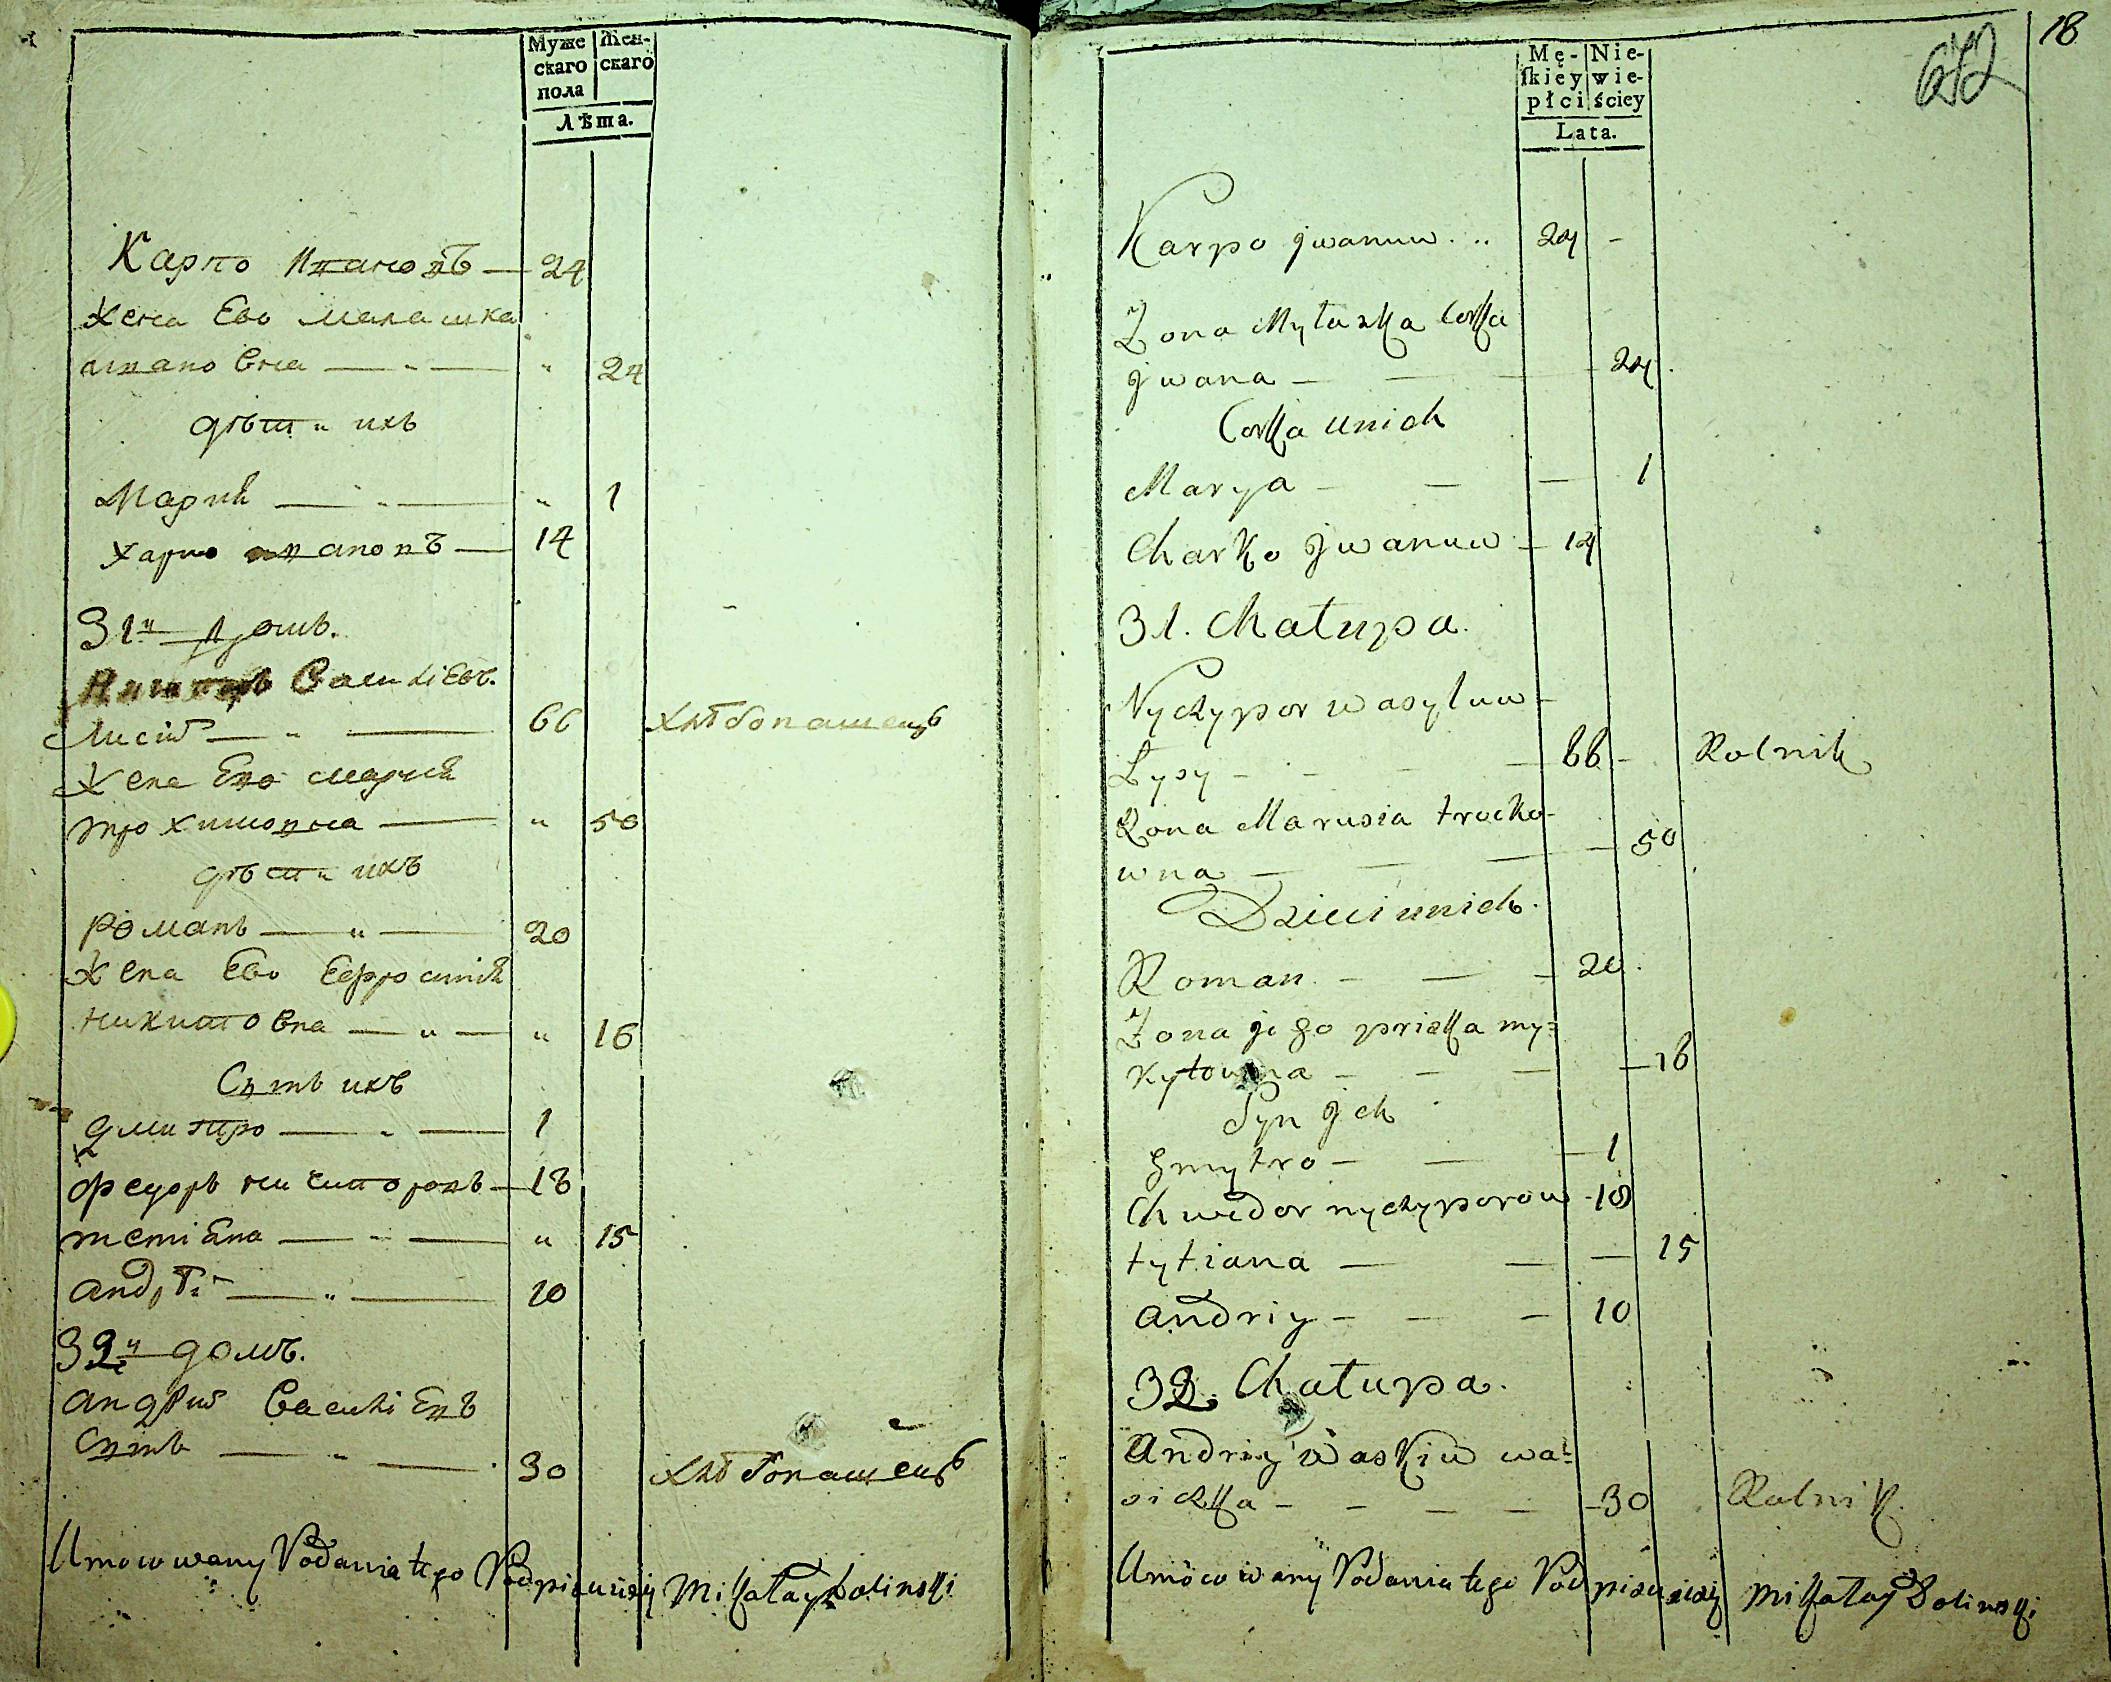 Муже
скаго
пола
Жен-
скаго
Лѣта.
Карпо Ивановъ — 24
Жена Ево Малашка
Ивановна — „ — „ 24
дѣти ихъ
Марія — „ — „ 1
Харко Ивановъ — 14
31й домъ.
Василіевъ
Лисій — „ — 66 хлѣбопашецъ
Жена Ево Марія
трохимовна — „ 50
дѣти ихъ
Романъ — „ — 20
Жена Ево Ефросинія
Никитовна — „ — „ 16
Сынъ ихъ
Дмитро — „ — 1
Федоръ Ничипоровъ — 18
тетіана — „ — „ 15
Андрѣй — „ — 10
32й домъ.
Андрѣй Василіевъ
Сынъ — „ — 30 хлѣбопашецъ
Umocowany Podania tego Podpisuiący Mikołay Dolinski
18
672
Mę-
skiey
płci
Nie-
wie-
ściey
Lata.
Karpo Jwanuw . .. 24 -
Żona Małaszka Corka
Jwana — — — 24.
Corka unich
Marya — — — 1
Charko Jwanuw — 14
31. Chałupa.
Nyczypor wasyluw —
Łysy — — — 66 — Rolnik
Żona Marusia trocho-
wna — — — 50
Dzieci unich.
Roman — — — 20.
Żona jego pryska my=
kytowna — — — 16
Syn Jch
Dmytro — — — 1
Chwedor nyczyporow - 18
tytiana — — — 15
Andriy — — — 10
32. Chałupa.
Andriy waskiw wa=
— — — — 30 Rolnik.
Umocowany Podania tego Podpisuiący Mikołay Dolinski